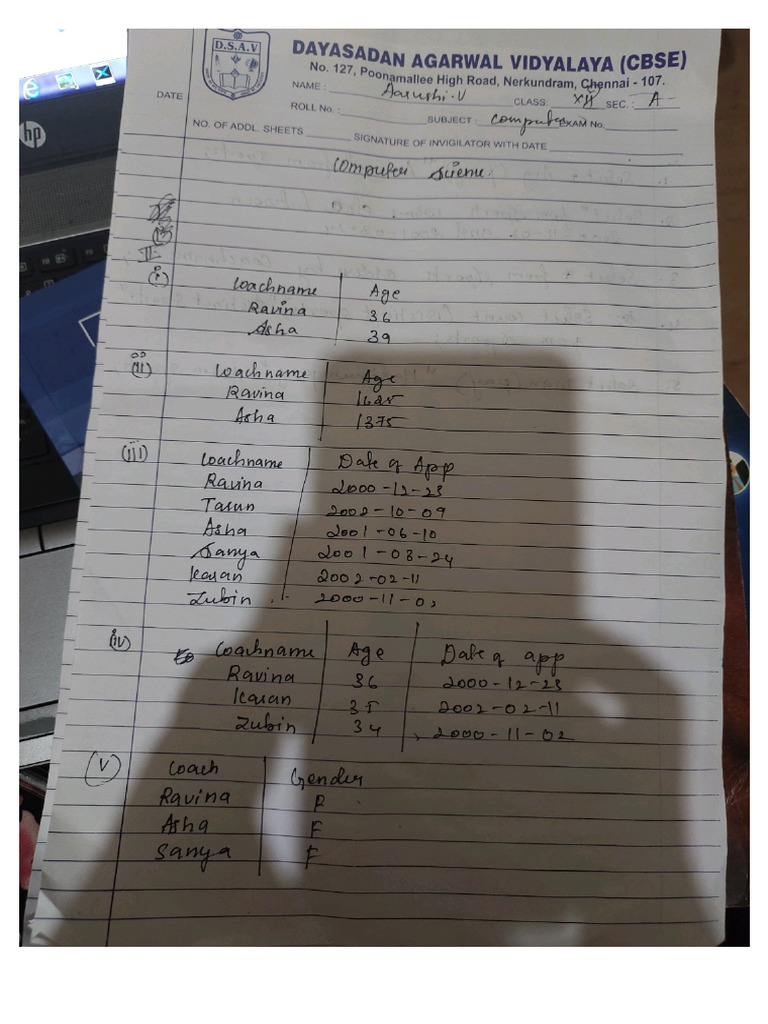 D.S.A.V
DAYASADAN AGARWAL VIDYALAYA (CBSE)
No. 127, Poonamallee High Road, Nerkundram, Chennai - 107.
DATE NAME : Aarushi.V CLASS: XII SEC. : A
ROLL No. : SUBJECT : Computer EXAM No.
NO. OF ADDL. SHEETS SIGNATURE OF INVIGILATOR WITH DATE
Computer Science
II
(i) Coachname Age
Ravina 36
Asha 39
(ii) Coachname Age
Ravina 1625
Asha 1375
(iii) Coachname Date of App
Ravina 2000-12-23
Tarun 2002-10-09
Asha 2001-06-10
Sanya 2001-03-24
Karan 2002-02-11
Zubin 2000-11-0
iv) Coachname Age Date of app
Ravina 36 2000-12-23
Karan 35 2002-02-11
Zubin 34 2000-11-02
(V) Coach Gender
Ravina F
Asha F
Sanya F
hp